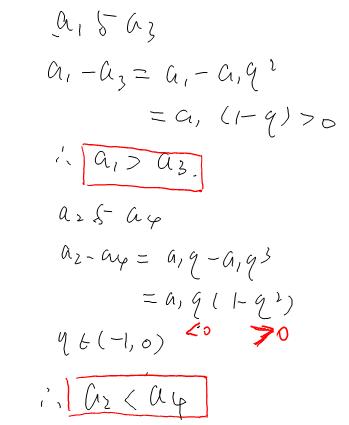 a₁ 与 a₃
a₁ - a₃ = a₁ - a₁q²
= a₁ (1-q) > 0
∴ a₁ > a₃.
a₂ 与 a₄
a₂ - a₄ = a₁q - a₁q³
= a₁q (1-q²)
q ∈ (-1, 0) <0 >0
∴ a₂ < a₄